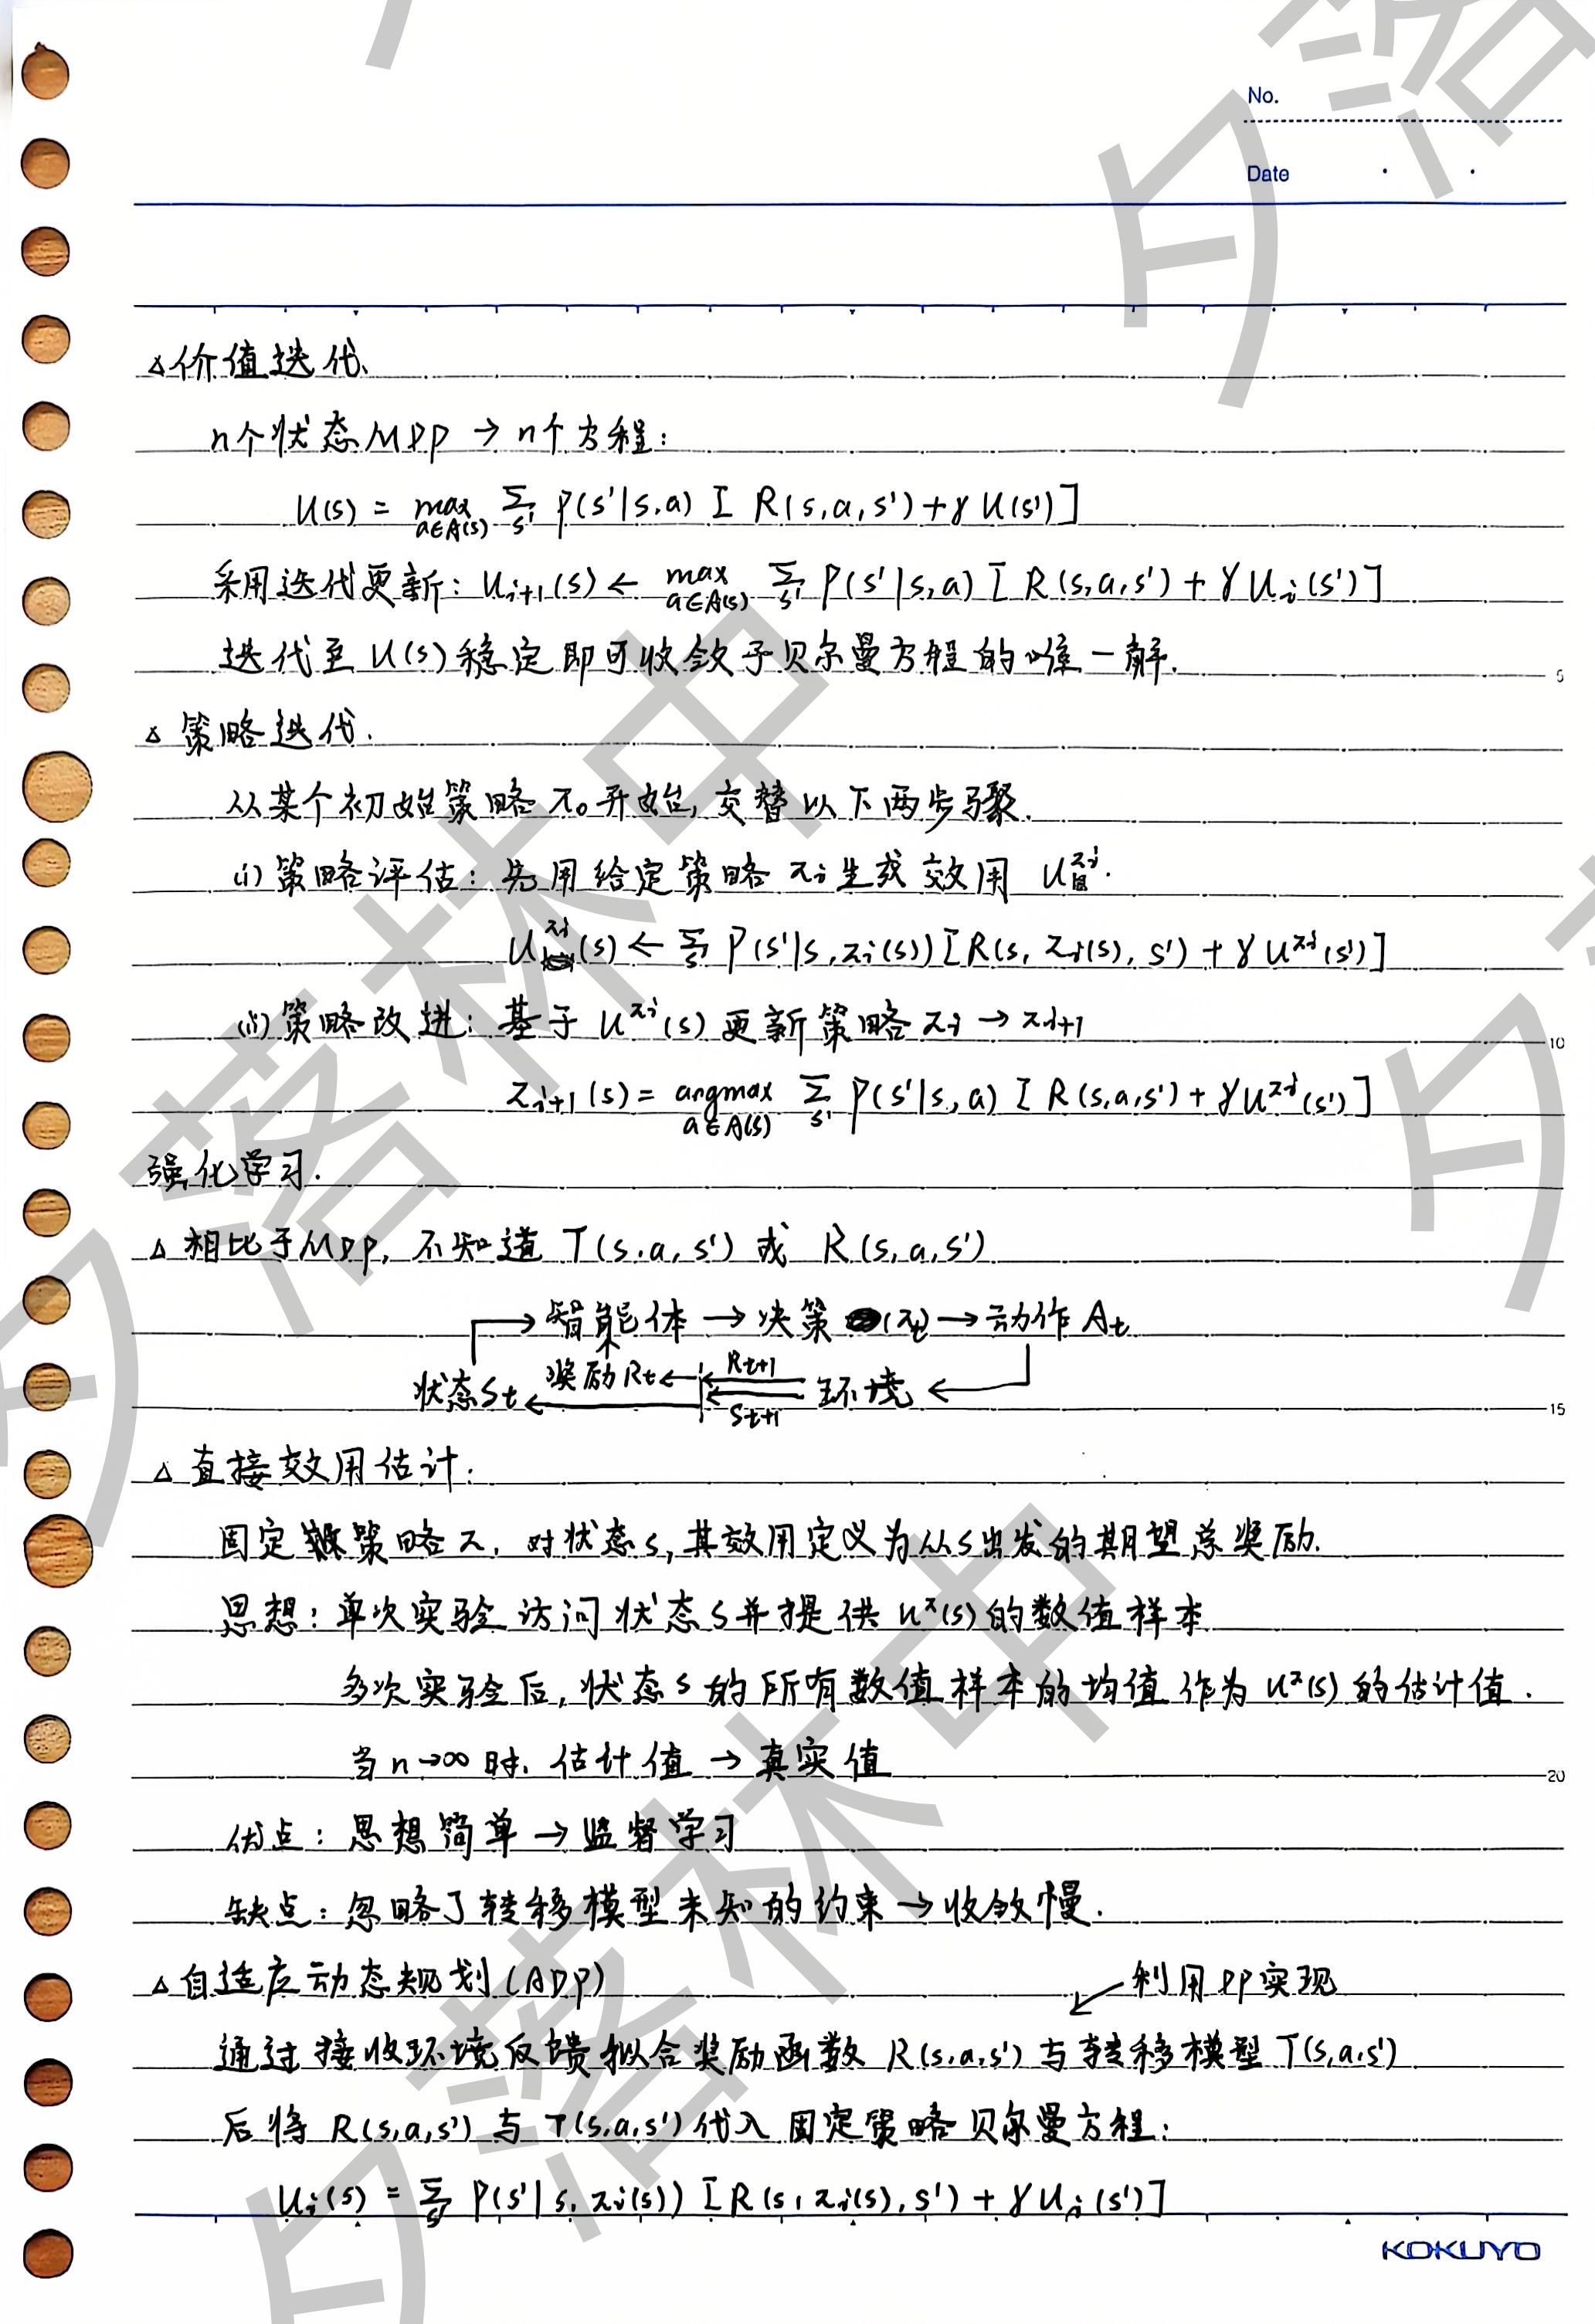 No.
Date
△价值迭代.
n个状态MDP → n个方程:
U(s) = max_{a∈A(s)} Σ_{s'} P(s'|s,a) [ R(s,a,s') + γ U(s') ]
采用迭代更新: U_{i+1}(s) ← max_{a∈A(s)} Σ_{s'} P(s'|s,a) [ R(s,a,s') + γ U_i(s') ]
迭代至 U(s) 稳定即可收敛于贝尔曼方程的唯一解.
5
△ 策略迭代.
从某个初始策略 π₀ 开始, 交替以下两步骤.
(i) 策略评估: 先用给定策略 πi 生成效用 U^{πi}.
U^{πi}(s) ← Σ_{s'} P(s'|s, πi(s)) [R(s, πi(s), s') + γ U^{πi}(s')]
(ii) 策略改进: 基于 U^{πi}(s) 更新策略 πi → πi+1
10
π_{i+1}(s) = argmax_{a∈A(s)} Σ_{s'} P(s'|s,a) [ R(s,a,s') + γ U^{πi}(s') ]
强化学习.
△ 相比于MDP, 不知道 T(s,a,s') 或 R(s,a,s')
→ 智能体 → 决策 (πt) → 动作 At
状态St ← 奖励Rt ← Rt+1 St+1 环境 ←
15
△ 直接效用估计:
固定策略π, 对状态s, 其效用定义为从s出发的期望总奖励.
思想: 单次实验访问状态s并提供 U^π(s) 的数值样本
多次实验后, 状态s的所有数值样本的均值作为 U^π(s) 的估计值.
当 n→∞ 时, 估计值 → 真实值
20
优点: 思想简单 → 监督学习
缺点: 忽略了转移模型未知的约束 → 收敛慢.
△ 自适应动态规划 (ADP)
利用DP实现
通过接收环境反馈拟合奖励函数 R(s,a,s') 与转移模型 T(s,a,s')
后将 R(s,a,s') 与 T(s,a,s') 代入固定策略贝尔曼方程:
U_i(s) = Σ_{s'} P(s'|s, πi(s)) [R(s, πi(s), s') + γ U_i(s')]
KOKUYO
夕落林中
夕落林中